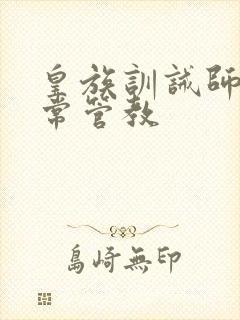 皇族訓誡師
常管教
島崎無印